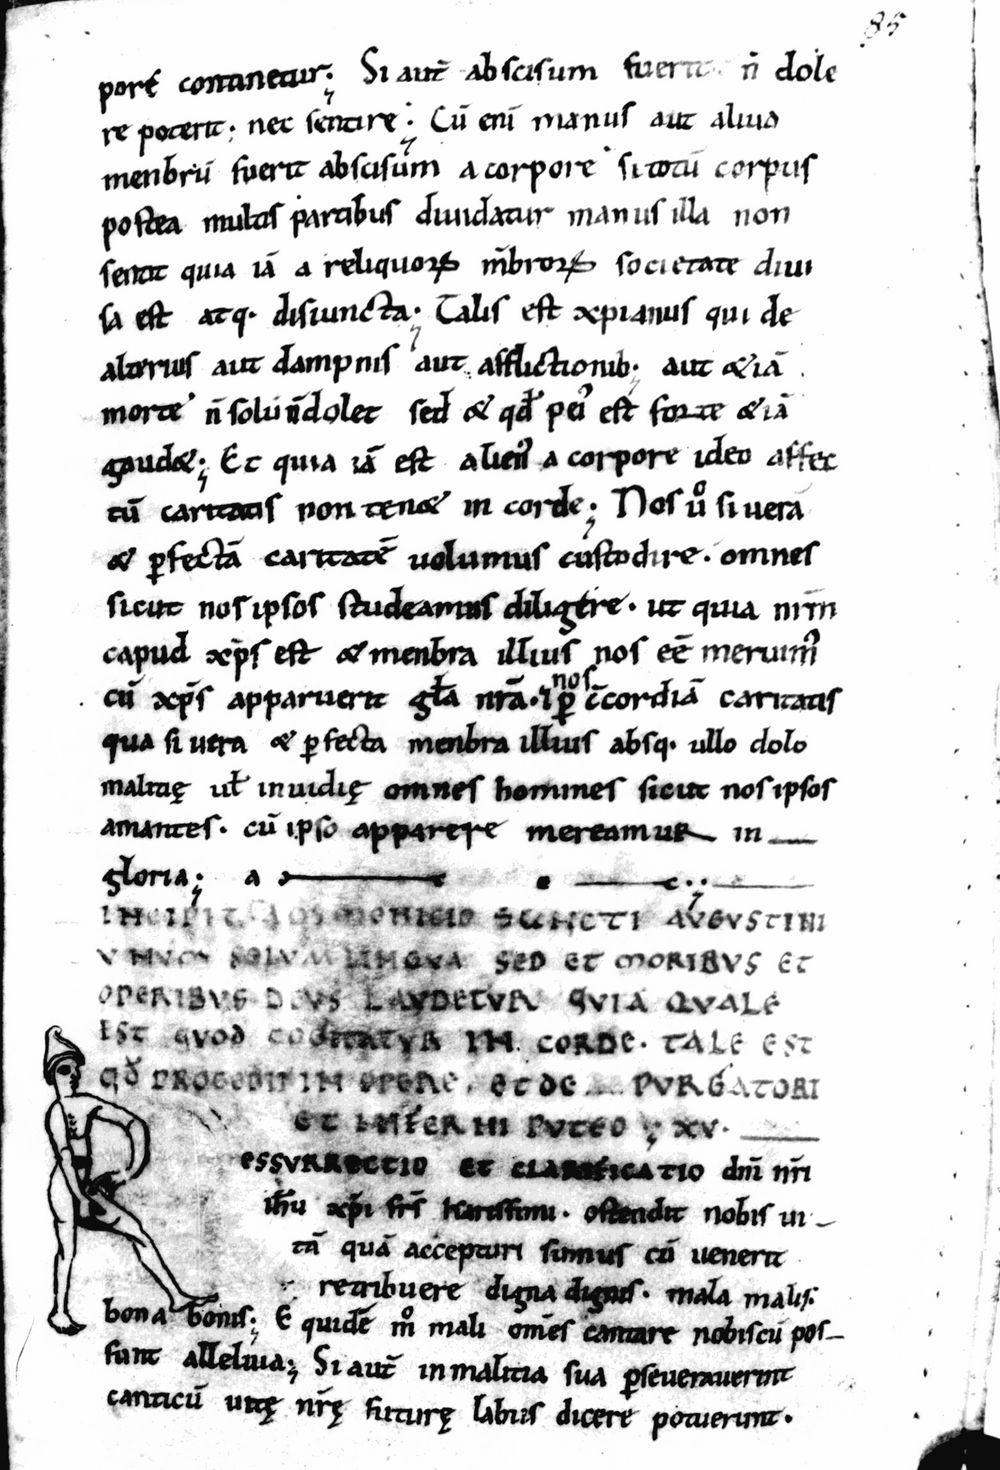 85
porẽ continetur; Si aut̃ abscisum fuerit n̄ dole
re poterit; nec sentire; Cū enī manus aut aliud
menbrū fuerit abscisum a corpore si totū corpus
postea multis partibus diuidatur manus illa non
sentit quia iā a reliquoꝝ m̄broꝝ societate diui
sa est atq· disiuncta; Talis est xp̄ianus qui de
alterius aut dampnis aut afflictionib; aut &iā
morte n̄ solū n̄ dolet sed & qđ pei᾽ est forte &iā
gaud&; Et quia iā est alien᾽ a corpore ideo affec
tū caritatis non ten& in corde; Nos ů si uerā
& ꝑfectā caritatē uolumus custodire· omnes
sicut nos ipsos studeamus diligere· ut quia nr̄m
capud xp̄s est & menbra illius nos eē meruim᾽
cū xp̄s apparuerit gła nrā· ꝑ nos c̄cordiā caritatis
qua si uera & ꝑfecta menbra illius absq· ullo dolo
malitię uł inuidię omnes homines sicut nos ipsos
amantes· cū ipso apparere mereamur in
gloria; a
INCIPIT SANCTI AVGVSTINI
LINGVA SED ET MORIBVS ET
OPERIBVS DEVS LAVDETVR QVIA QVALE
EST QVOD COGITATVR IN CORDE· TALE EST
QĐ PROCEDIT IN OPERE· ET DE PVRGATORI
ET INFERNI PVTEO XV·
ESSVRRECTIO ET CLARIFICATIO dn̄i nr̄i
ih̄u xp̄i fr̄s karissimi· ostendit nobis ui
tā quā accepturi sumus cū uenerit
retribuere digna dignis· mala malis·
bona bonis; E quidē m̊ mali om̄es cantare nobiscū pos
sunt alleluia; Si aut̃ in malitia sua ꝑseuerauerint
canticū uitę nr̄ę futurę labiis dicere potuerunt·